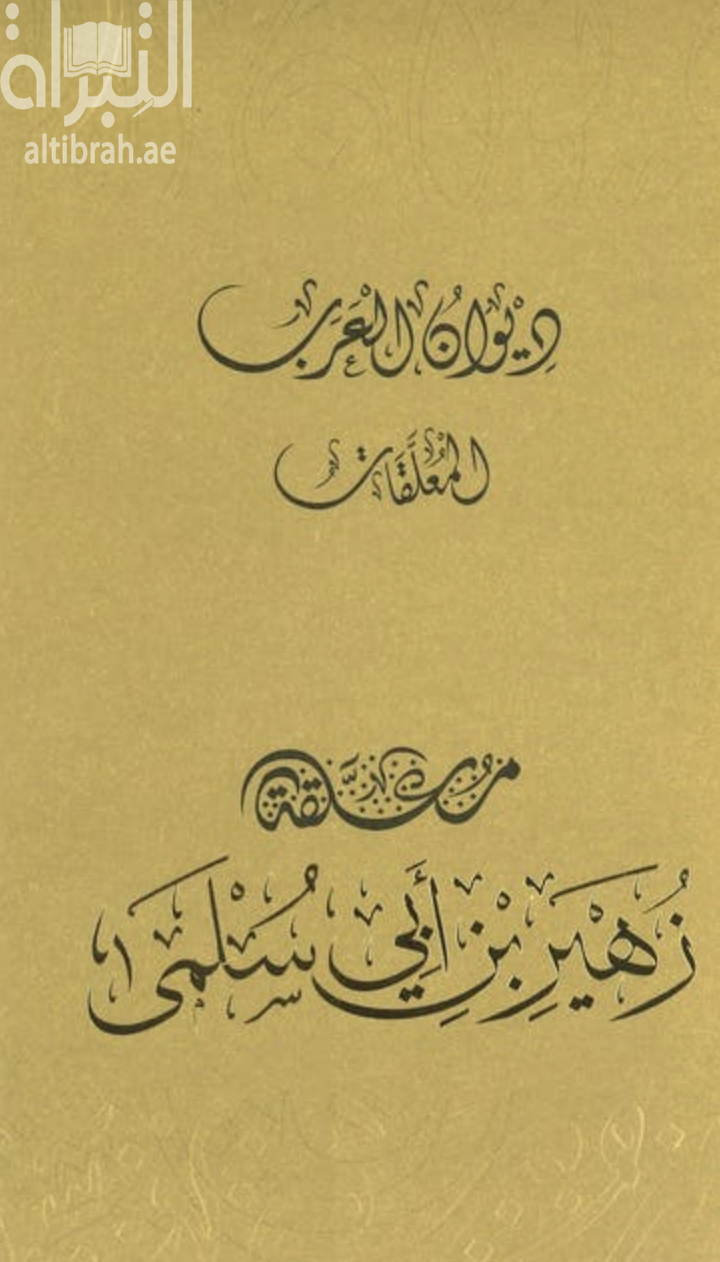 التبراة
altibrah.ae
دِيْوَانُ الْعَرَبِ
الْمُعَلَّقَاتُ
معلقة
زُهَيْرِ بْنِ أَبِي سُلْمَى